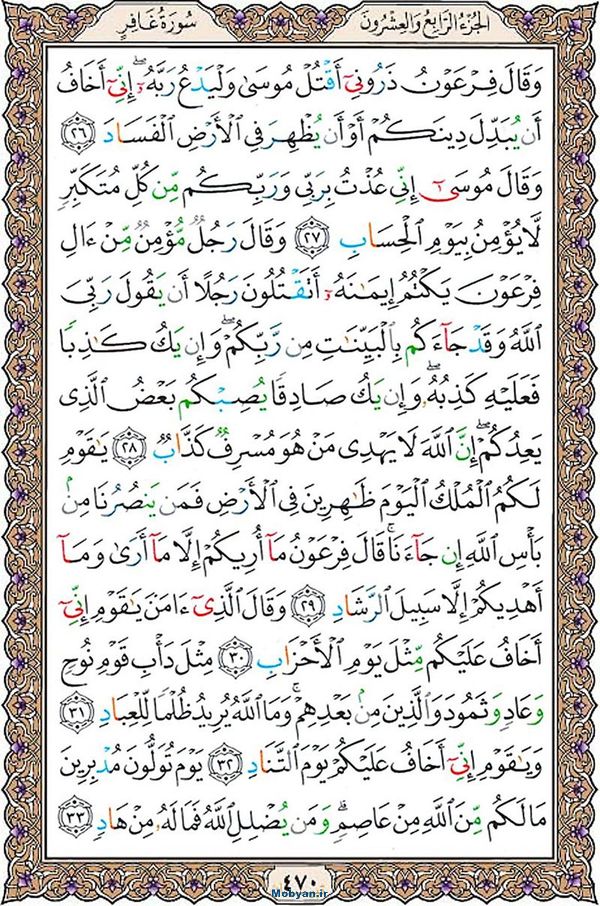 الجزء الرابع والعشرون
سورة غافر
وَقَالَ فِرْعَوْنُ ذَرُونِىٓ أَقْتُلْ مُوسَىٰ وَلْيَدْعُ رَبَّهُۥٓ ۖ إِنِّىٓ أَخَافُ
أَن يُبَدِّلَ دِينَكُمْ أَوْ أَن يُظْهِرَ فِى ٱلْأَرْضِ ٱلْفَسَادَ ٢٦
وَقَالَ مُوسَىٰٓ إِنِّى عُذْتُ بِرَبِّى وَرَبِّكُم مِّن كُلِّ مُتَكَبِّرٍ
لَّا يُؤْمِنُ بِيَوْمِ ٱلْحِسَابِ ٢٧ وَقَالَ رَجُلٌ مُّؤْمِنٌ مِّنْ ءَالِ
فِرْعَوْنَ يَكْتُمُ إِيمَـٰنَهُۥٓ أَتَقْتُلُونَ رَجُلًا أَن يَقُولَ رَبِّىَ
ٱللَّهُ وَقَدْ جَآءَكُم بِٱلْبَيِّنَـٰتِ مِن رَّبِّكُمْ ۖ وَإِن يَكُ كَـٰذِبًا
فَعَلَيْهِ كَذِبُهُۥ ۖ وَإِن يَكُ صَادِقًا يُصِبْكُم بَعْضُ ٱلَّذِى
يَعِدُكُمْ ۖ إِنَّ ٱللَّهَ لَا يَهْدِى مَنْ هُوَ مُسْرِفٌ كَذَّابٌ ٢٨ يَـٰقَوْمِ
لَكُمُ ٱلْمُلْكُ ٱلْيَوْمَ ظَـٰهِرِينَ فِى ٱلْأَرْضِ فَمَن يَنصُرُنَا مِنۢ
بَأْسِ ٱللَّهِ إِن جَآءَنَا ۚ قَالَ فِرْعَوْنُ مَآ أُرِيكُمْ إِلَّا مَآ أَرَىٰ وَمَآ
أَهْدِيكُمْ إِلَّا سَبِيلَ ٱلرَّشَادِ ٢٩ وَقَالَ ٱلَّذِىٓ ءَامَنَ يَـٰقَوْمِ إِنِّىٓ
أَخَافُ عَلَيْكُم مِّثْلَ يَوْمِ ٱلْأَحْزَابِ ٣٠ مِثْلَ دَأْبِ قَوْمِ نُوحٍ
وَعَادٍ وَثَمُودَ وَٱلَّذِينَ مِنۢ بَعْدِهِمْ ۚ وَمَا ٱللَّهُ يُرِيدُ ظُلْمًا لِّلْعِبَادِ ٣١
وَيَـٰقَوْمِ إِنِّىٓ أَخَافُ عَلَيْكُمْ يَوْمَ ٱلتَّنَادِ ٣٢ يَوْمَ تُوَلُّونَ مُدْبِرِينَ
مَا لَكُم مِّنَ ٱللَّهِ مِنْ عَاصِمٍ ۗ وَمَن يُضْلِلِ ٱللَّهُ فَمَا لَهُۥ مِنْ هَادٍ ٣٣
٤٧٠
Mobyan.ir